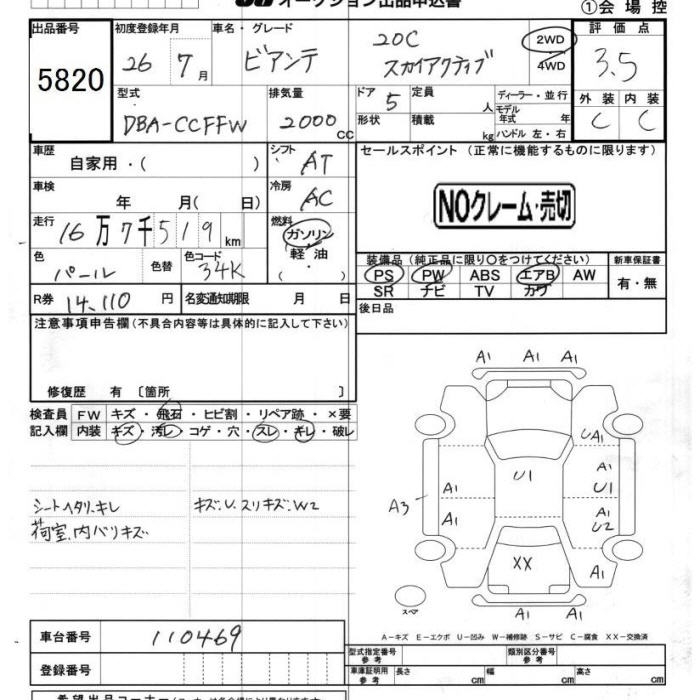 オークション出品申込書
①会場控
出品番号 初度登録年月 車名・グレード 評価点
5820 26 7月 ビアンテ 20C スカイアクティブ 2WD 4WD 3.5
型式 排気量 ドア 定員 ディーラー・並行 外装 内装
DBA-CCFFW 2000CC 5 人 モデル年式 年 C C
形状 積載 kg ハンドル 左・右
車歴 シフト セールスポイント (正常に機能するものに限ります)
自家用・( ) AT
車検 冷房
年 月( 日) AC NOクレーム・売切
走行 燃料
16万7千519km ガソリン
色 色替 色コード 軽油・ 装備品(純正品に限り○をつけてください) 新車保証書
パール 34K ( ) PS PW ABS エアB AW 有・無
R券 14,110円 名変通知期限 月 日 SR ナビ TV カワ
注意事項申告欄(不具合内容等は具体的に記入して下さい) 後日品
修復歴 有 〔箇所 〕
検査員 FW キズ・飛石・ヒビ割・リペア跡・×要
記入欄 内装 キズ・汚レ・コゲ・穴・スレ・キレ・破レ
シートヘタリ.キレ キズ.U.スリキズ.W2
荷室.内バリキズ
A1 A1 A1
UA1
A1 U1 A1
U1
A3 A1 A1
U2
XX
A1
A1
スペア
A-キズ E-エクボ U-凹み W-補修跡 S-サビ C-腐食 XX-交換済
車台番号 110469
型式指定番号 参考 類別区分番号 参考
登録番号 車庫証明用 参考 長さ cm 幅 cm 高さ cm